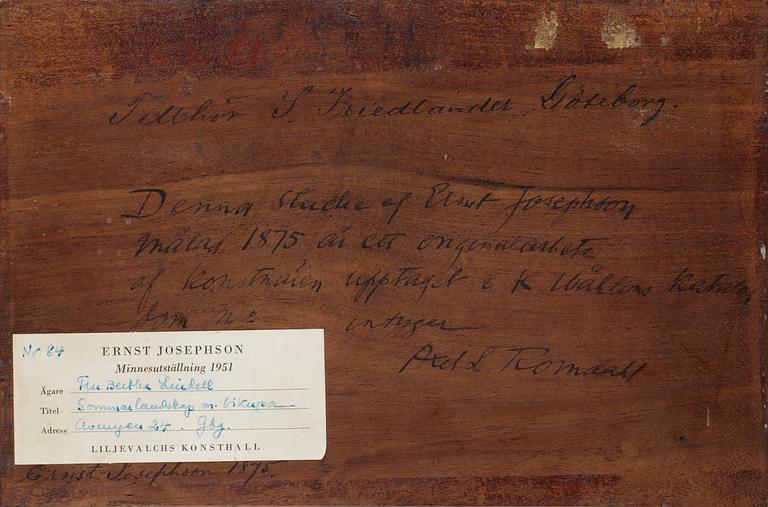 Tillhör S. Friedländer, Göteborg.
Denna studie af Ernst Josephson
målad 1875 är ett originalarbete
af konstnären upptaget i K Wåhlins Katalog
som n:o intyger
Axel L. Romdahl
Nr 84
ERNST JOSEPHSON
Minnesutställning 1951
Ägare Fru Bertha Lindell
Titel Sommarlandskap m. bikupor
Adress Avenyen 24. Gbg.
LILJEVALCHS KONSTHALL
Ernst Josephson 1875.